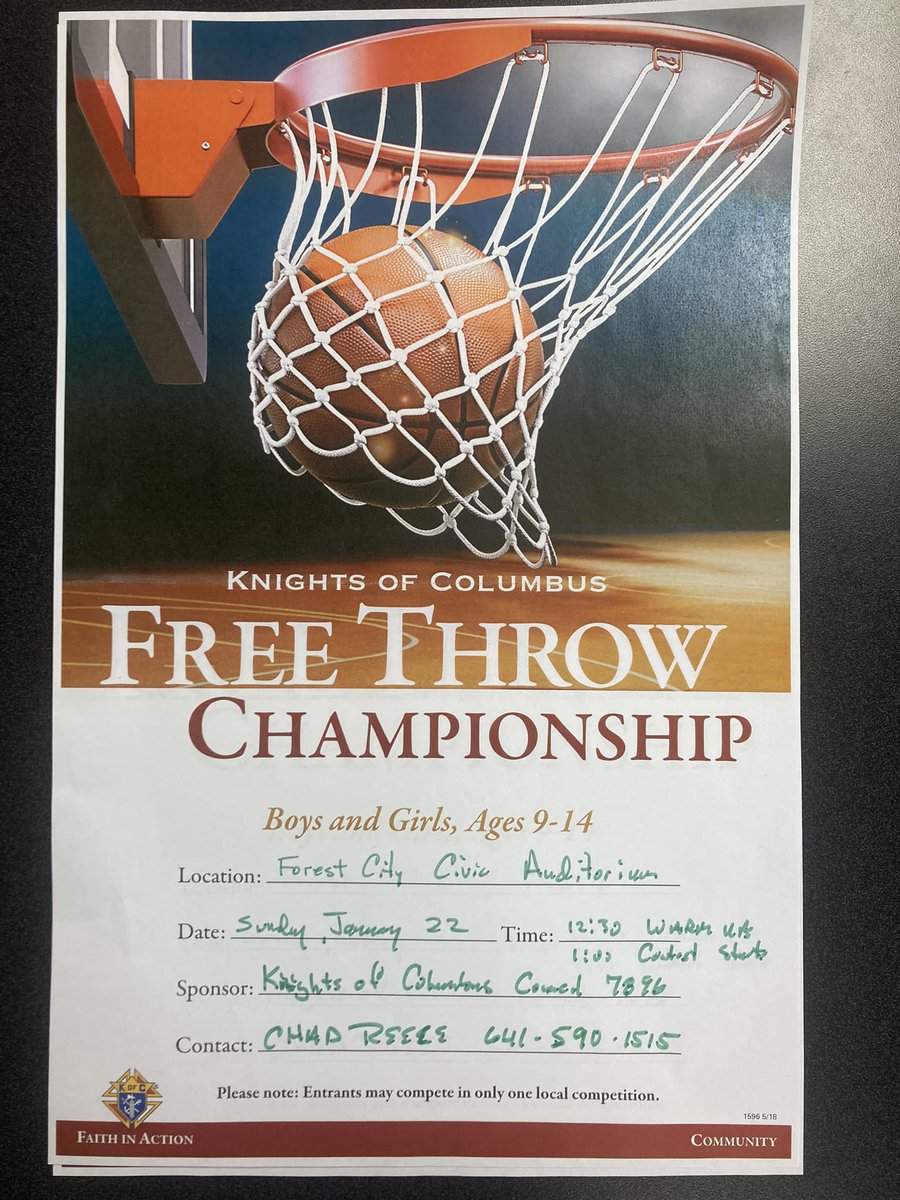 KNIGHTS OF COLUMBUS
FREE THROW
CHAMPIONSHIP
Boys and Girls, Ages 9-14
Location: Forest City Civic Auditorium
Date: Sunday, January 22 Time: 12:30 WARM UP
1:00 Contest Starts
Sponsor: Knights of Columbus Council 7896
Contact: CHAD REECE 641-590-1515
K OF C
Please note: Entrants may compete in only one local competition.
1596 5/18
FAITH IN ACTION
COMMUNITY